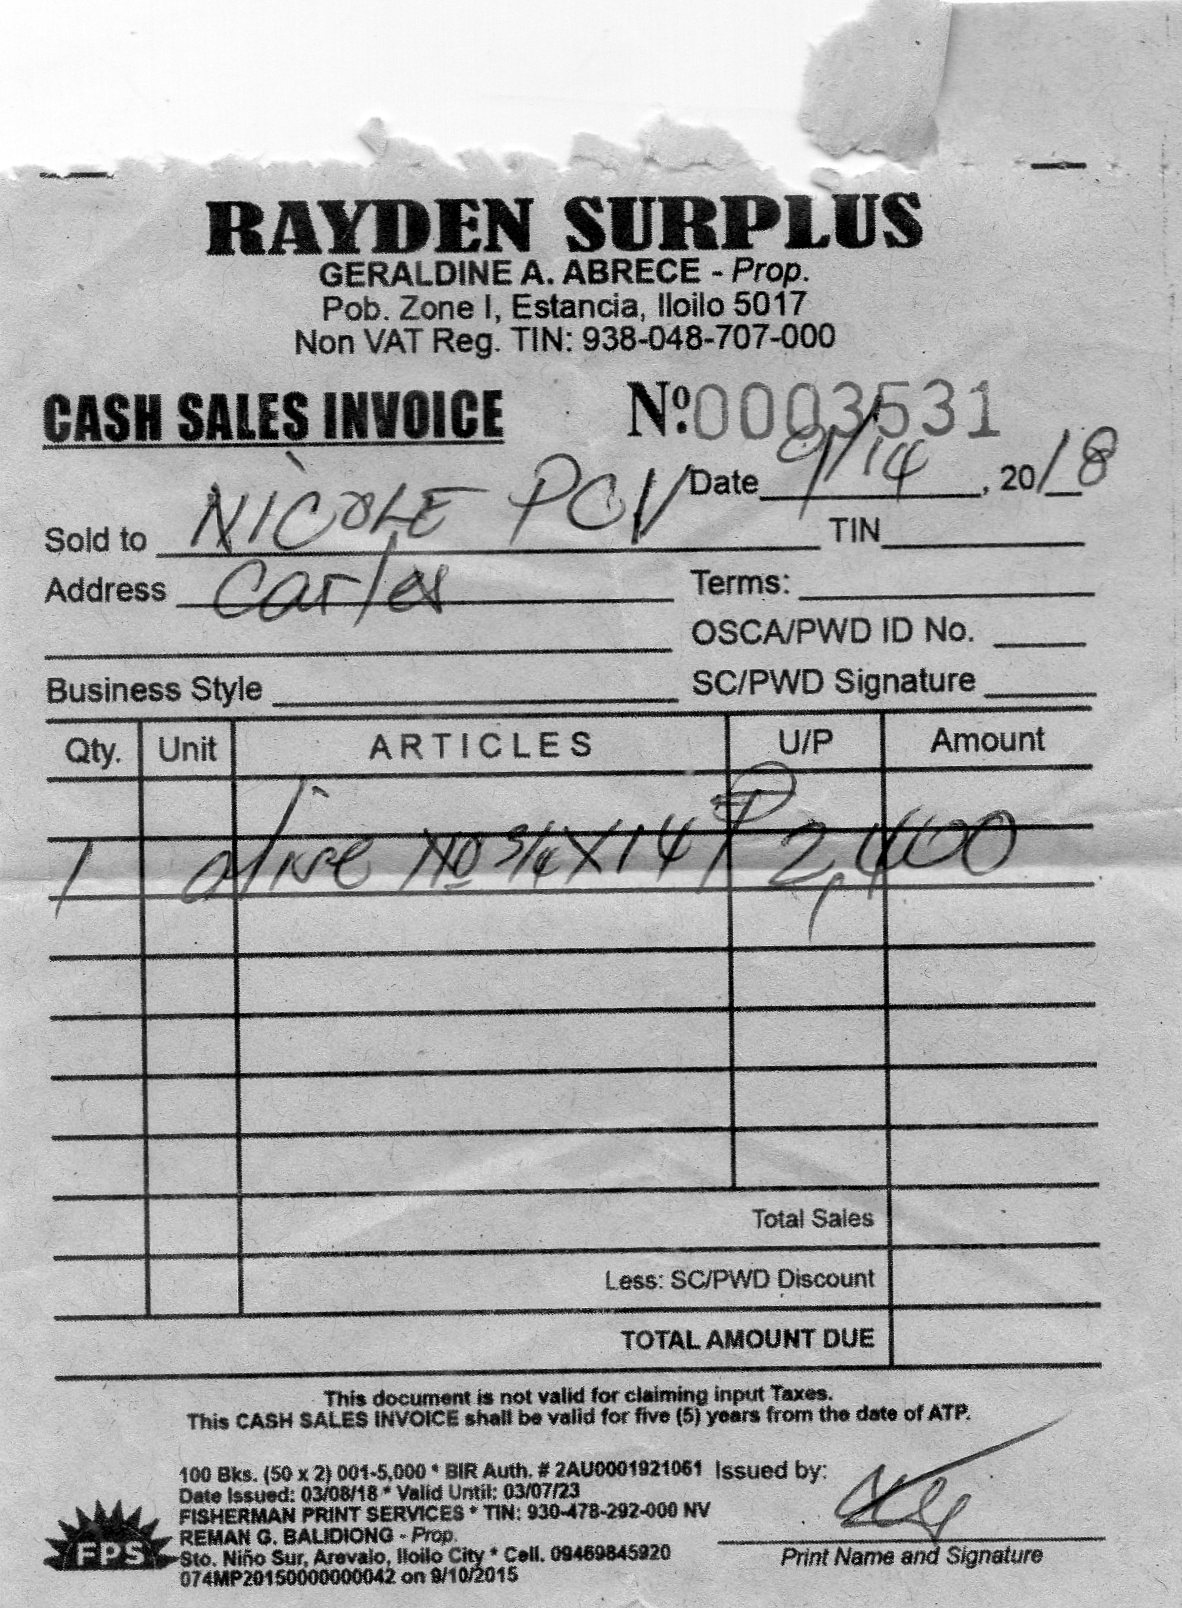 RAYDEN SURPLUS
GERALDINE A. ABRECE - Prop.
Pob. Zone I, Estancia, Iloilo 5017
Non VAT Reg. TIN: 938-048-707-000
CASH SALES INVOICE Nº. 0003531
Date 9/14, 20/18
Sold to NICOLE PCV TIN
Address Carles Terms:
OSCA/PWD ID No.
Business Style SC/PWD Signature
Qty. Unit ARTICLES U/P Amount
1 No 3/4 X 14 ₱ 2,400
Total Sales
Less: SC/PWD Discount
TOTAL AMOUNT DUE
This document is not valid for claiming input Taxes.
This CASH SALES INVOICE shall be valid for five (5) years from the date of ATP.
100 Bks. (50 x 2) 001-5,000 * BIR Auth. # 2AU0001921061 Issued by:
Date Issued: 03/08/18 * Valid Until: 03/07/23
FISHERMAN PRINT SERVICES * TIN: 930-478-292-000 NV
REMAN G. BALIDIONG - Prop.
FPS Sto. Niño Sur, Arevalo, Iloilo City * Cell. 09469845920
Print Name and Signature
074MP20150000000042 on 9/10/2015